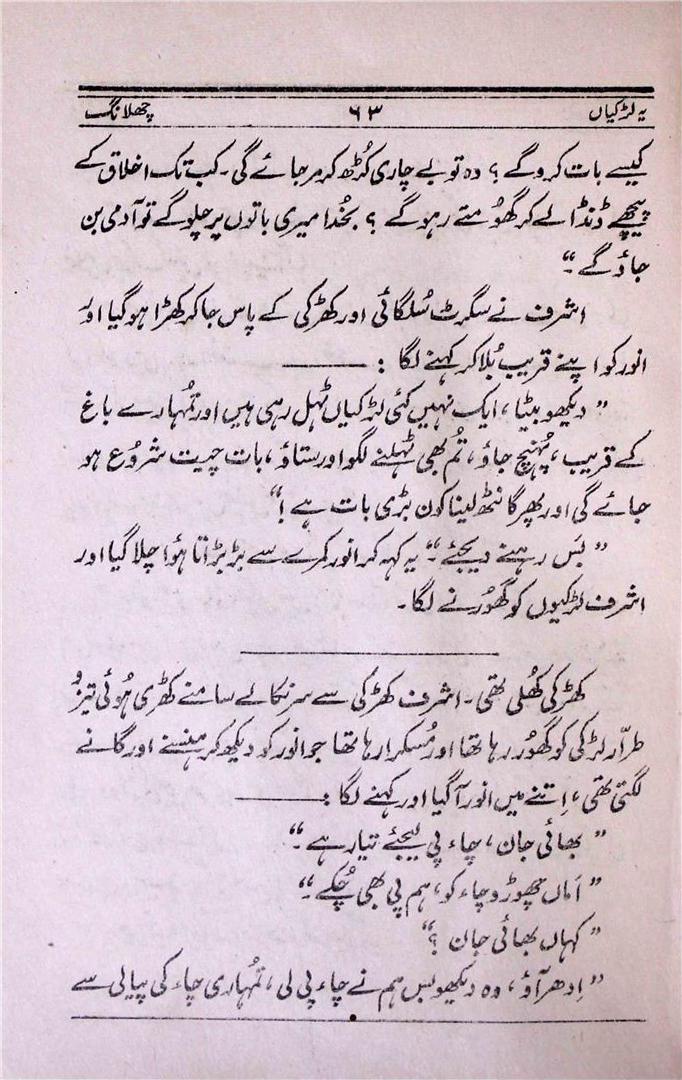 یہ لڑکیاں ۶۳ چھلانگ
کیسے بات کرو گے ؟ وہ تو بے چاری کُڑھ کر مر جائے گی۔ کب تک اخلاق کے
پیچھے ڈنڈا لے کر گھومتے رہو گے ؟ بخُدا میری باتوں پر چلو گے تو آدمی بن
جاؤ گے ۔“
اشرف نے سگرٹ سُلگائی اور کھڑکی کے پاس جا کر کھڑا ہو گیا اور
انور کو اپنے قریب بُلا کر کہنے لگا : ———
” دیکھو بیٹا ، ایک نہیں کئی لڑکیاں ٹہل رہی ہیں اور تمُہارے باغ
کے قریب ، پہُنچ جاؤ ، تُم بھی ٹہلنے لگو اور ستاؤ ، بات چیت شروُع ہو
جائے گی اور پھر گانٹھ لینا کون بڑی بات ہے !“
” بَس رہنے دیجئے ۔“ یہ کہہ کر انور کمرے سے بڑبڑاتا ہُوا چلا گیا اور
اشرف لڑکیوں کو گھوُرنے لگا۔
کھڑکی کھُلی تھی۔ اشرف کھڑکی سے سر نکالے سامنے کھڑی ہُوئی تیز و
طرّار لڑکی کو گھوُر رہا تھا اور مُسکرا رہا تھا جو انور کو دیکھ کر ہنسنے اور گانے
لگتی تھی ، اِتنے میں انور آ گیا اور کہنے لگا : ———
” بھائی جان ، چاء پی لیجئے تیار ہے ۔“
” اَماں چھوڑو چاء کو ، ہم پی بھی چُکے ۔“
” کہاں بھائی جان ؟“
” اِدھر آؤ ، وہ دیکھو بس ہم نے چاء پی لی ، تمُہاری چاء کی پیالی سے